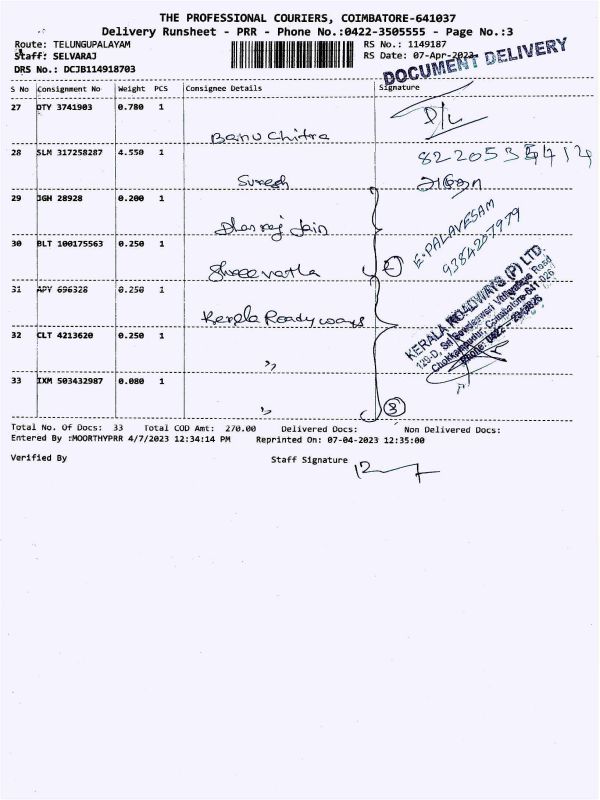 THE PROFESSIONAL COURIERS, COIMBATORE-641037
Delivery Runsheet - PRR - Phone No.:0422-3505555 - Page No.:3
Route: TELUNGUPALAYAM RS No.: 1149187
Staff: SELVARAJ RS Date: 07-Apr-2023
DRS No.: DCJB114918703
DOCUMENT DELIVERY
S No Consignment No Weight PCS Consignee Details Signature
27 OTY 3741903 0.780 1 Banu Chitra D/L
28 SLM 317258287 4.550 1 Suresh
29 JGH 28928 0.200 1 Dhanraj Jain
E. PALAVESAM
9384207979
30 BLT 100175563 0.250 1 Shreevatla
31 APY 696328 0.250 1 Kerala Roadyways
KERALA ROADWAYS (P) LTD.
32 CLT 4213620 0.250 1 "
33 IXM 503432987 0.080 1 " 3
Total No. Of Docs: 33 Total COD Amt: 270.00 Delivered Docs: Non Delivered Docs:
Entered By :MOORTHYPRR 4/7/2023 12:34:14 PM Reprinted On: 07-04-2023 12:35:00
Verified By Staff Signature